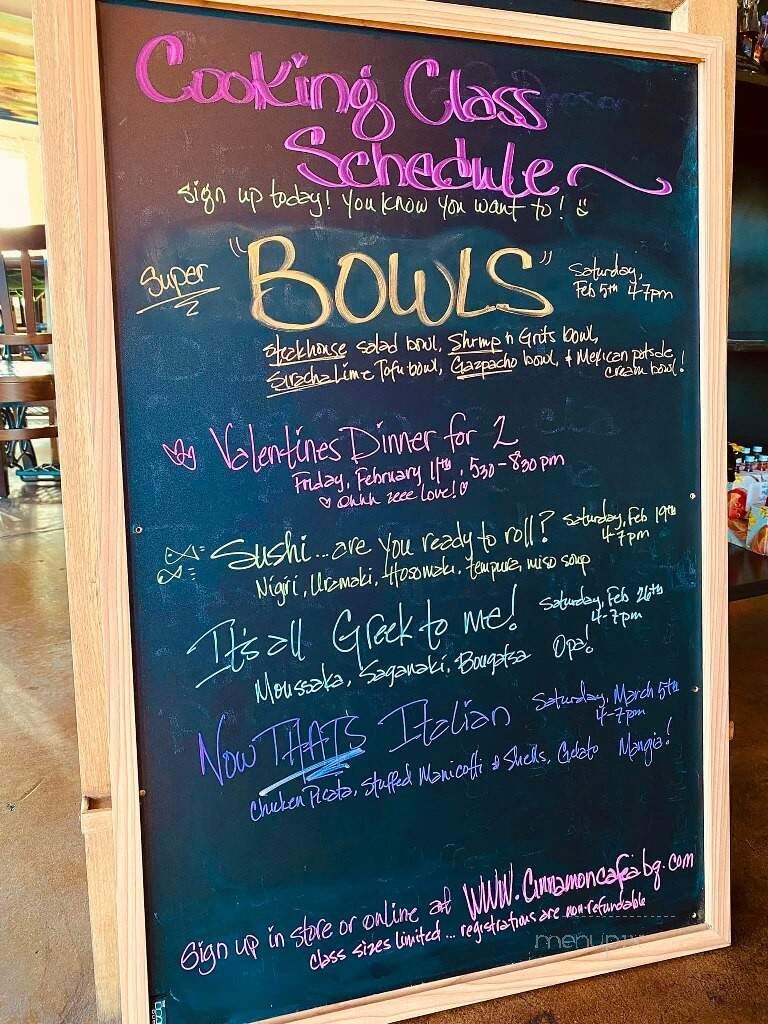 Cooking Class
Schedule
Sign up today! You know you want to!
Super "BOWLS" Saturday,
Feb 5th 4-7pm
Steakhouse salad bowl, Shrimp n Grits bowl,
Siracha Lime Tofu bowl, Gazpacho bowl, & Mexican potsde
cream bowl!
Valentines Dinner for 2
Friday, February 11th, 530-830pm
Ohhh zeee love!
Sushi...are you ready to roll? Saturday, Feb 19th
4-7pm
Nigiri, Uramaki, Hosomaki, tempura, miso soup
It's all Greek to me! Saturday, Feb 26th
4-7pm
Moussaka, Saganaki, Bougatsa Opa!
Now THAT'S Italian Saturday, March 5th
4-7pm
Chicken Picata, Stuffed Manicotti & Shells, Gelato Mangia!
Sign up in store or online at WWW.Cinnamoncafeabq.com
class sizes limited... registrations are non-refundable